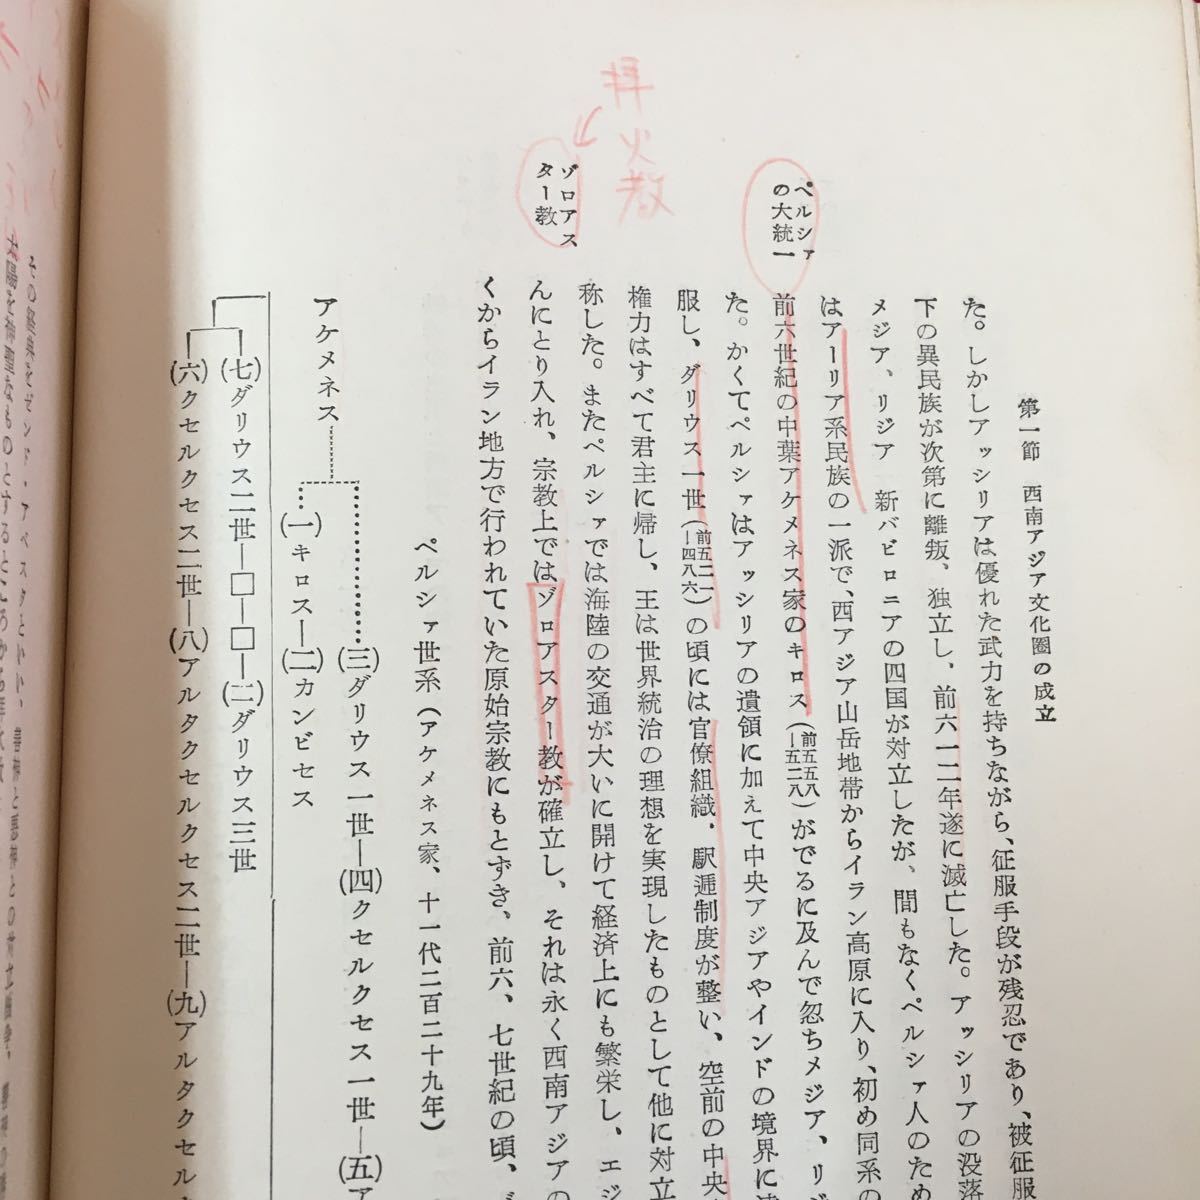 第一節 西南アジア文化圏の成立
た。しかしアッシリアは優れた武力を持ちながら、征服手段が残忍であり、被征服
下の異民族が次第に離叛、独立し、前六一二年遂に滅亡した。アッシリアの没落
メジア、リジア 新バビロニアの四国が対立したが、間もなくペルシァ人のため
はアーリア系民族の一派で、西アジア山岳地帯からイラン高原に入り、初め同系の
ペルシァ
の大統一
前六世紀の中葉アケメネス家のキロス(前五五八―五二八)がでるに及んで忽ちメジア、リジ
た。かくてペルシァはアッシリアの遺領に加えて中央アジアやインドの境界に
服し、ダリウス一世(前五二一―四八六)の頃には官僚組織、駅逓制度が整い、空前の中央
権力はすべて君主に帰し、王は世界統治の理想を実現したものとして他に対立
称した。またペルシァでは海陸の交通が大いに開けて経済上にも繁栄し、エジ
拝火教
ゾロアス
ター教
んにとり入れ、宗教上ではゾロアスター教が確立し、それは永く西南アジアの
くからイラン地方で行われていた原始宗教にもとずき、前六、七世紀の頃、
ペルシァ世系(アケメネス家、十一代二百二十九年)
アケメネス
(三)ダリウス一世―(四)クセルクセス一世―(五)ア
(一)キロス―(二)カンビセス
(七)ダリウス二世―□―□―(二)ダリウス三世
(六)クセルクセス二世―(八)アルタクセルクセス二世―(九)アルタクセル
その経典をゼンド・アベスタといい、善神と悪神との対立
太陽を神聖なものとするところから拝火教